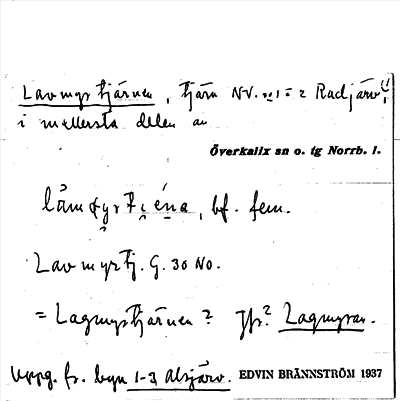 Lavmyrtjärnen, tjärn NV. n 1 = 2 Radjärv,
i mellersta delen av
Överkalix sn o. tg Norrb. l.
bf. fem.
Lavmyrtj. G. 30 NO.
= Lagmyrtjärnen? Jfr? Lagmyran.
Uppg. fr. byn 1-3 Alsjärv. EDVIN BRÄNNSTRÖM 1937